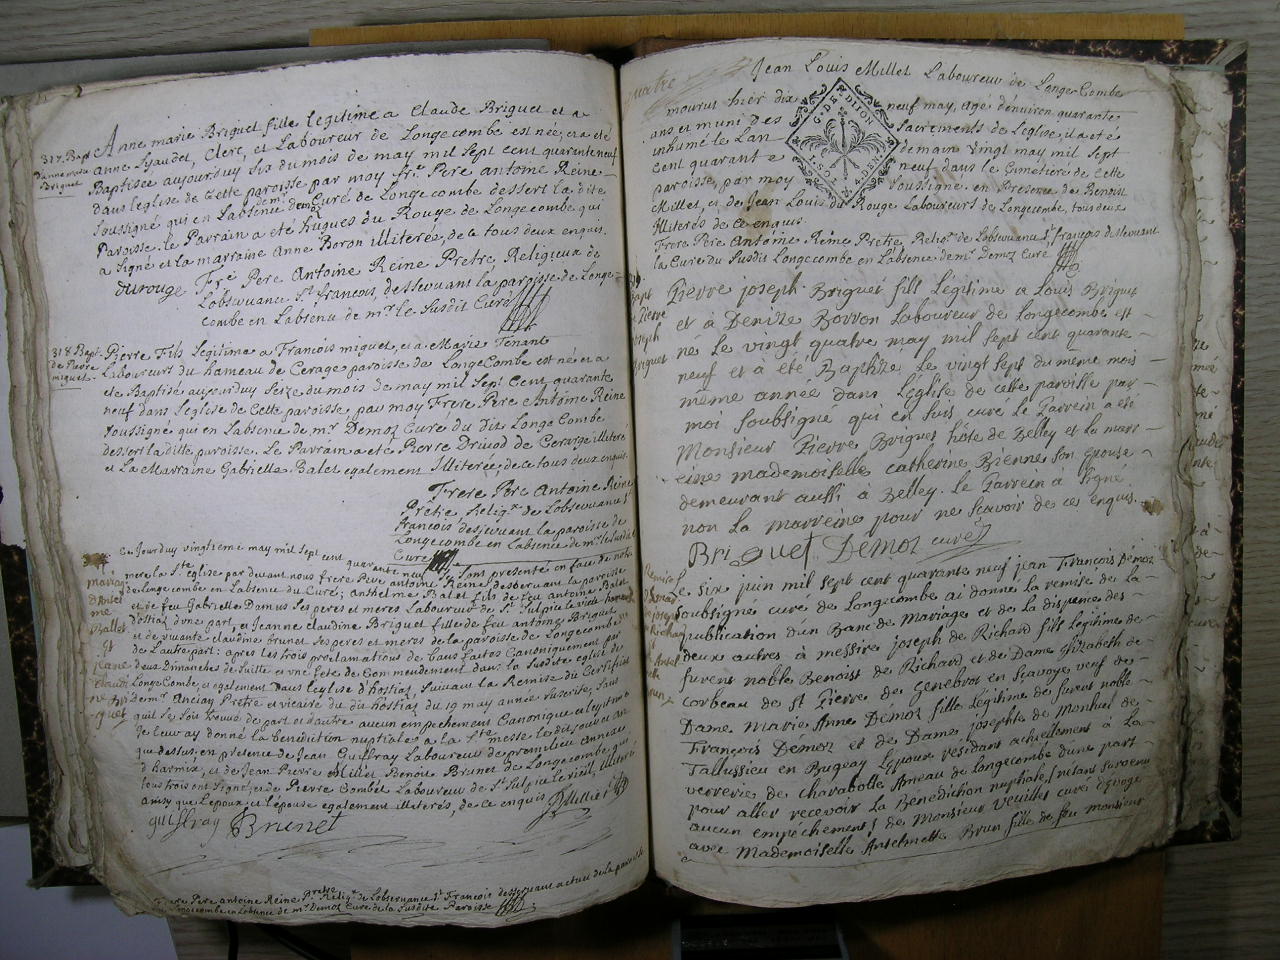 317. Bapt
d'anne marie
Briguet
Anne marie Briguet fille legitime a Claude Briguet et a
anne Jyaudet, Clerc, et Laboureur de Longecombe est née, et a eté
Baptisée aujourduy six du mois de may mil sept cent quarante neuf
dans leglise de Cette paroisse par moy fr. Pere antoine Reine
soussigné qui en Labsence de mr Demoz Curé de Longecombe dessert la dite
Paroisse. le Parrain a eté hugues du Rouge de Longecombe qui
a signé et la marraine Anne Boron illiterée, de ce tous deux enquis.
durouge Fre Pere Antoine Reine Pretre Religieux de
Lobservance St françois, desservant la paroisse de Longe-
combe en Labsence de mr. le Susdit Curé
318. Bapt.
de Pierre
miguet.
Pierre Fils Legitime a François miguet, et a Marie Tenant
Laboureurs du hameau de Cerage paroisse de LongeCombe est né et a
eté Baptisé aujourduy seize du mois de may mil Sept Cent quarante
neuf dans leglise de Cette paroisse, par moy Frere Pere Antoine Reine
soussigné qui en Labsence de mr Demoz Curé du Dit Longe Combe
dessert la ditte paroisse. Le Parrain a eté Pierre Drivod de Cerarge illiteré
et La Marraine Gabrielle Balet egalement Illiterée, de ce tous deux enquis.
Frere Pere Antoine Reine
Prêtre Religx de Lobservance St
François desservant la paroisse de
Longecombe en Labsence de mr le susdit
Curé
Ce Jourduy vingtieme may mil sept cent quarante neuf se sont presenté en face de notre
mariage
d'Antel
me
Ballet
et
jeane
claudi
ne Bri
guet
mere la Ste Eglise par devant nous frere Pere antoine Reine desservant la paroisse
de Longecombe en Labsence du Curé; anthelme Balet fils de feu antoine Balet
et de feu Gabrielle Damus ses peres et meres Laboureurs de St Sulpice le vieux hameau
d'hostiaz d'une part, et Jeanne Claudine Briguet fille de feu antoine Briguet
et de vivante claudine Brunet ses peres et meres de la paroisse de Longecombe
de Lautre part: apres les trois proclamations de bans faites Canoniquement par
deux Dimanches de suitte et une fête de Commendement dans la susdite eglise de
LongeCombe, et egalement dans leglise d'hostiaz, suivant la Remise du Certificat
de mr. Anciau Prêtre et vicaire du dit hostiaz du 19 may année susecrite, sans
quil se soit trouvé de part et dautre aucun empechement Canonique et legitime
Je leur ay donné la benediction nuptiale a la Ste messe les dits jour et an
que dessus, en presence de Jean Guiffray Laboureur de premilieu annexe
d'harmix, et de Jean Pierre Millet Benoite Brunet de Longecombe, qui
tous trois ont signé, et de Pierre Combet Laboureur de St Sulpice le vieil, illiteré
ainsy que Lepoux, et lépouse egalement illiterés, de ce enquis JP Millet
guiffray Brunet
Frere Pere antoine Reine Pretre Religx de Lobservance St François desservant actuel de la paroisse de
Longecombe en Labsence de mr Demoz Curé de la Susdite Paroisse
quatre
Jean Louis Millet Laboureur de LongeCombe
mourut hier dix neuf may, agé denviron quarante
ans et muni des Sacrements de Leglise, il a eté
inhumé le Lan demain vingt may mil Sept
Cent quarante neuf dans le Cimetiere de Cette
paroisse, par moy soussigné en Presence de Benoist
G. DE DIJON
Millet, et de Jean Louis du Rouge Laboureurs de Longecombe, tous deux
Illiterés de Ce enquis
Frere Pere Antoine Reine Pretre, Religx de Lobservance St françois desservant
la Cure du Susdit Longecombe en Labsence de mr Demoz Curé
Bapt
Pierre
joseph
Briguet
Pierre joseph Briguet fils Légitime a Louis Briguet
et à Denize Borron Laboureur de Longecombe est
né Le vingt quatre may mil sept cent quarante
neuf et à été Baptize Le vingt sept du meme mois
même année dans L'église de cette paroisse par
moi soubsigné qui en suis curé Le Parrein a été
Monsieur Pierre Briguet hôte de Belley et La marr
eine mademoiselle catherine Bienne son epouse
demeurant aussi à Belley. Le Parrein a signé
non La marreine pour ne scavoir de ces enquis.
Briguet Demoz curé
Remise
Richard
Antel
Brun
Le Six juin mil sept cent quarante neuf jean François Démoz
soubsigné curé de Longecombe ai donné La remise de La
publication d'un Banc de Mariage et de La dispence des
deux autres à messire joseph de Richard fils Légitime de
furent noble Benoist de Richard et de Dame Elizabeth de
corbeau de St Pierre de Genebroz en Scavoye veuf de
Dame Marie Anne Démoz fille Légitime de furent noble
François Démoz et de Dame josephte de Monhuel de
Talussieu en Bugeay Epoux residant actuellement à La
verrerie de charabotte Ameau de Longecombe d'une part
pour aller recevoir La Bénédiction nuptiale, (n'étant survenu
aucun empéchement) de Monsieur veuillet curé d'évoge
avec Mademoiselle Antelmette Brun fille de feu monsieur